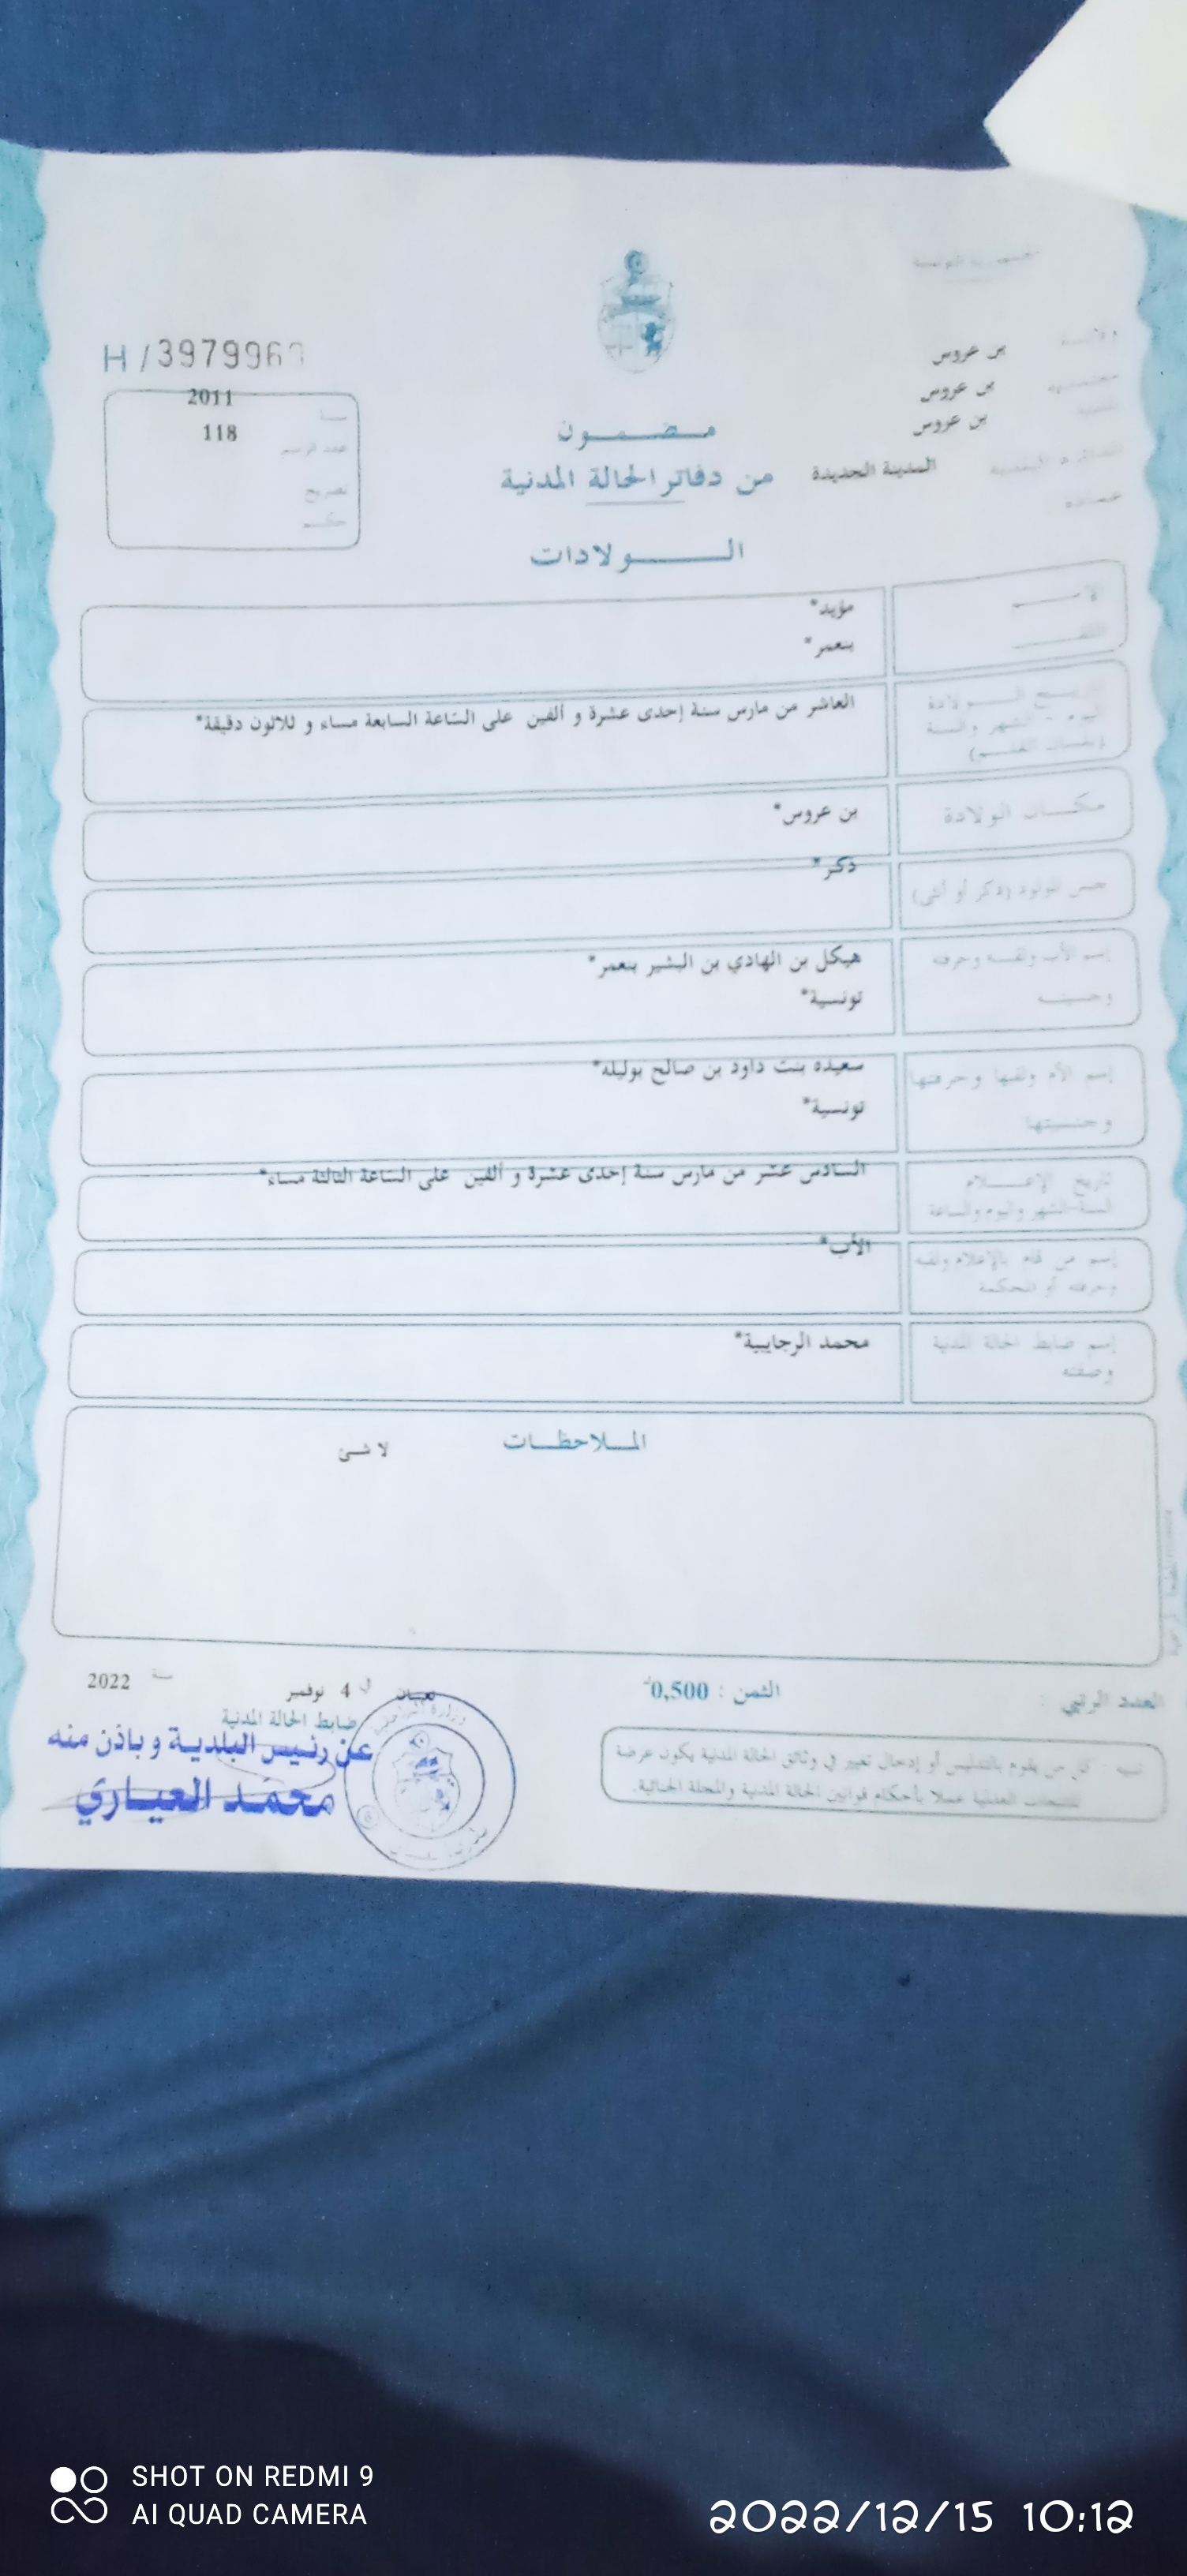 الجمهورية التونسية
H / 397996
ولاية بن عروس
معتمدية بن عروس
بلدية بن عروس
الدائرة البلدية المدينة الجديدة
عمادة
سنة 2011
عدد الرسم 118
تصريح
حكم
مضمون
من دفاتر الحالة المدنية
الولادات
الإسم مؤيد*
اللقب بنعمر*
تاريخ الولادة العاشر من مارس سنة إحدى عشرة و ألفين على الساعة السابعة مساء و ثلاثون دقيقة*
اليوم - الشهر والسنة
(بلسان القلم)
مكان الولادة بن عروس*
جنس المولود (ذكر أو أنثى) ذكر*
إسم الأب ولقبه وحرفته هيكل بن الهادي بن البشير بنعمر*
وجنسيته تونسية*
إسم الأم ولقبها وحرفتها سعيده بنت داود بن صالح بوليله*
وجنسيتها تونسية*
تاريخ الإعلام السادس عشر من مارس سنة إحدى عشرة و ألفين على الساعة الثالثة مساء*
السنة-الشهر واليوم والساعة
إسم من قام بالإعلام ولقبه الأب*
وحرفته أو المحكمة
إسم ضابط الحالة المدنية محمد الرجايبية*
وصفته
الملاحظات
لا شئ
العدد الرتبي :
الثمن : 0,500د
نعسان في 4 نوفمبر سنة 2022
ضابط الحالة المدنية
عن رئيس البلدية و باذن منه
محمد العياري
تنبيه : كل من يقوم بالتدليس أو إدخال تغيير في وثائق الحالة المدنية يكون عرضة
للتتبعات العدلية عملا بأحكام قوانين الحالة المدنية والمجلة الجنائية.
SHOT ON REDMI 9
AI QUAD CAMERA
2022/12/15 10:12